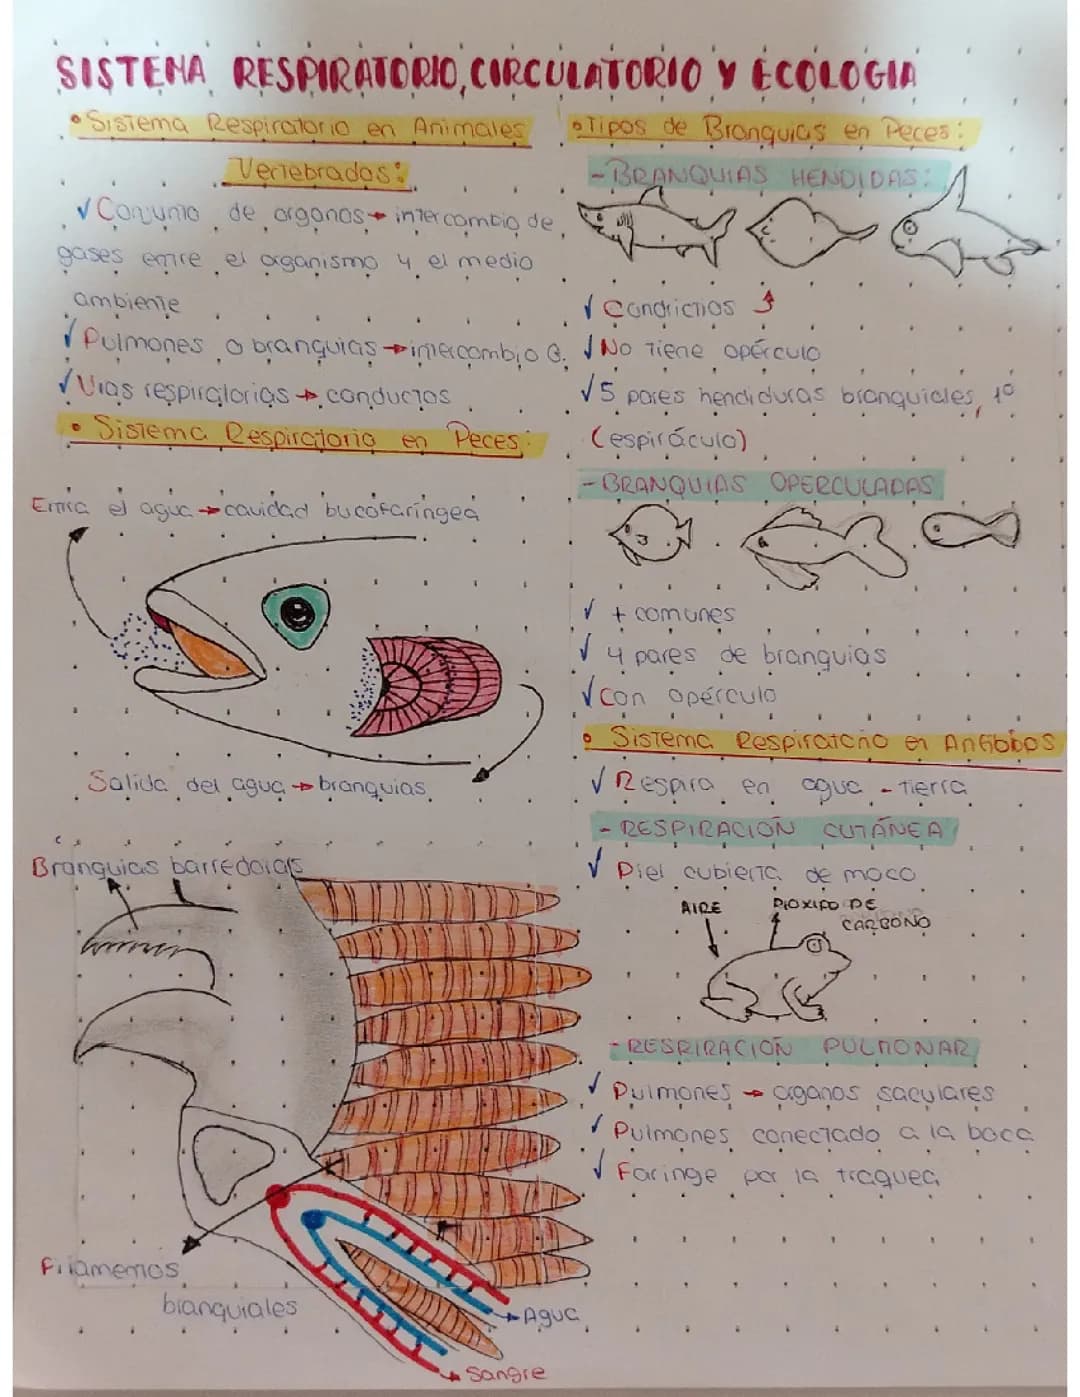 SISTEMA RESPIRATORIO, CIRCULATORIO Y ECOLOGIA
• Sistema Respiratorio en Animales
Vertebrados:
✓ Conjunto de organos → intercambio de
gases entre el organismo y el medio
ambiente
✓ Pulmones o branquias → intercambio G.
✓ Vias respiratorias → conductos
• Sistema Respiratorio en Peces:
Entra el agua → cavidad bucofaríngea
Salida del agua → branquias
Branquias barredoras
Filamentos
branquiales
→ Agua
→ Sangre
• Tipos de Branquias en Peces:
- BRANQUIAS HENDIDAS:
✓ Condrictios
✓ No tiene opérculo
✓ 5 pares hendiduras branquiales, 1º
(espiráculo)
- BRANQUIAS OPERCULADAS
✓ + comunes
✓ 4 pares de branquias
✓ Con opérculo
• Sistema Respiratorio en Anfibios
✓ Respira en agua - tierra
- RESPIRACIÓN CUTÁNEA
✓ Piel cubierta de moco
AIRE
DIOXIDO DE
CARBONO
- RESPIRACIÓN PULMONAR
✓ Pulmones → organos saculares
✓ Pulmones conectado a la boca
✓ Faringe por la traquea